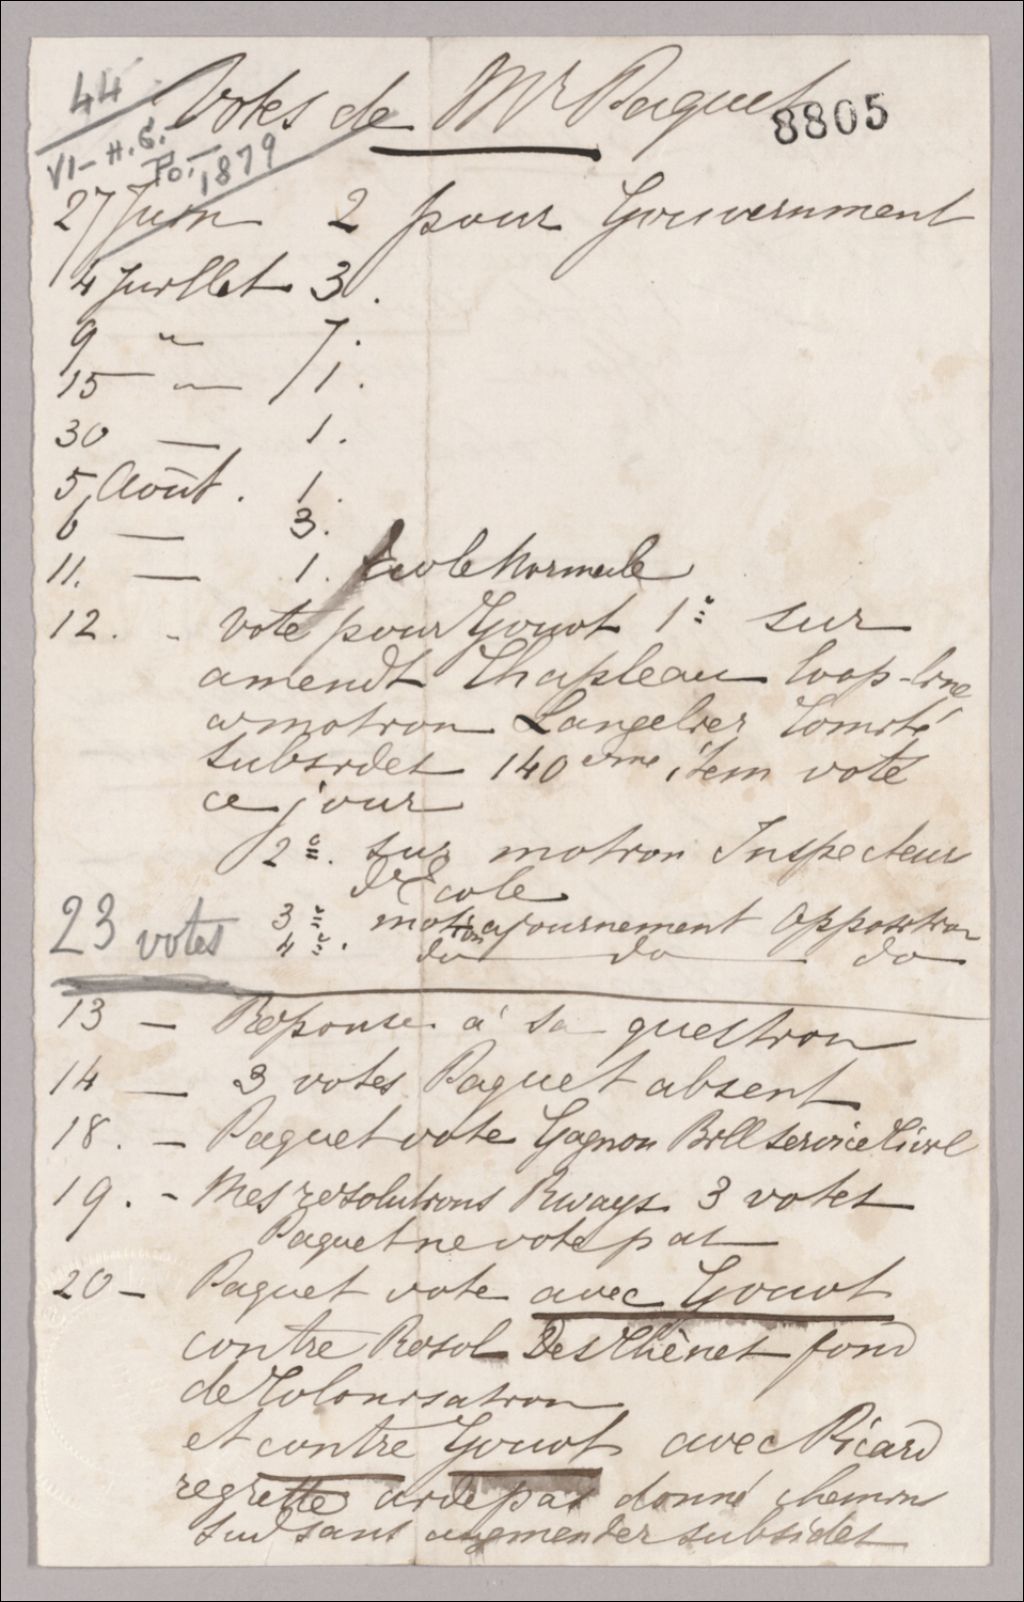 44
Votes de Mr Paquet
8805
VI - H. G.
Po. - 1879
27 Juin 2 pour Gouvernment
4 Juillet 3.
9 " 7.
15 — " — 11.
30 — 1.
5 Août. 1.
6 — 3.
11. — 1. Ecole Normale
12. - Vote pour Gouvt 1° sur
amendt Chapleau loop-line
a motion Langelier Comité
subsides 140eme item vote
ce jour
2°. sur motion Inspecteur
d'Ecole
3° motion ajournement Opposition
4°. do do do
23 votes
13 — Reponse à sa question
14 — 3 votes Paquet absent
18. — Paquet vote Gagnon Bill service Civil
19. - Mes resolutions Rways 3 votes
Paquet ne vote pas
20 - Paquet vote avec Gouvt
contre Resol Des Chênes fond
de Colonisation
et contre Gouvt avec Picard
regrette aide pas donné chemin
sud sans augmenter subsides